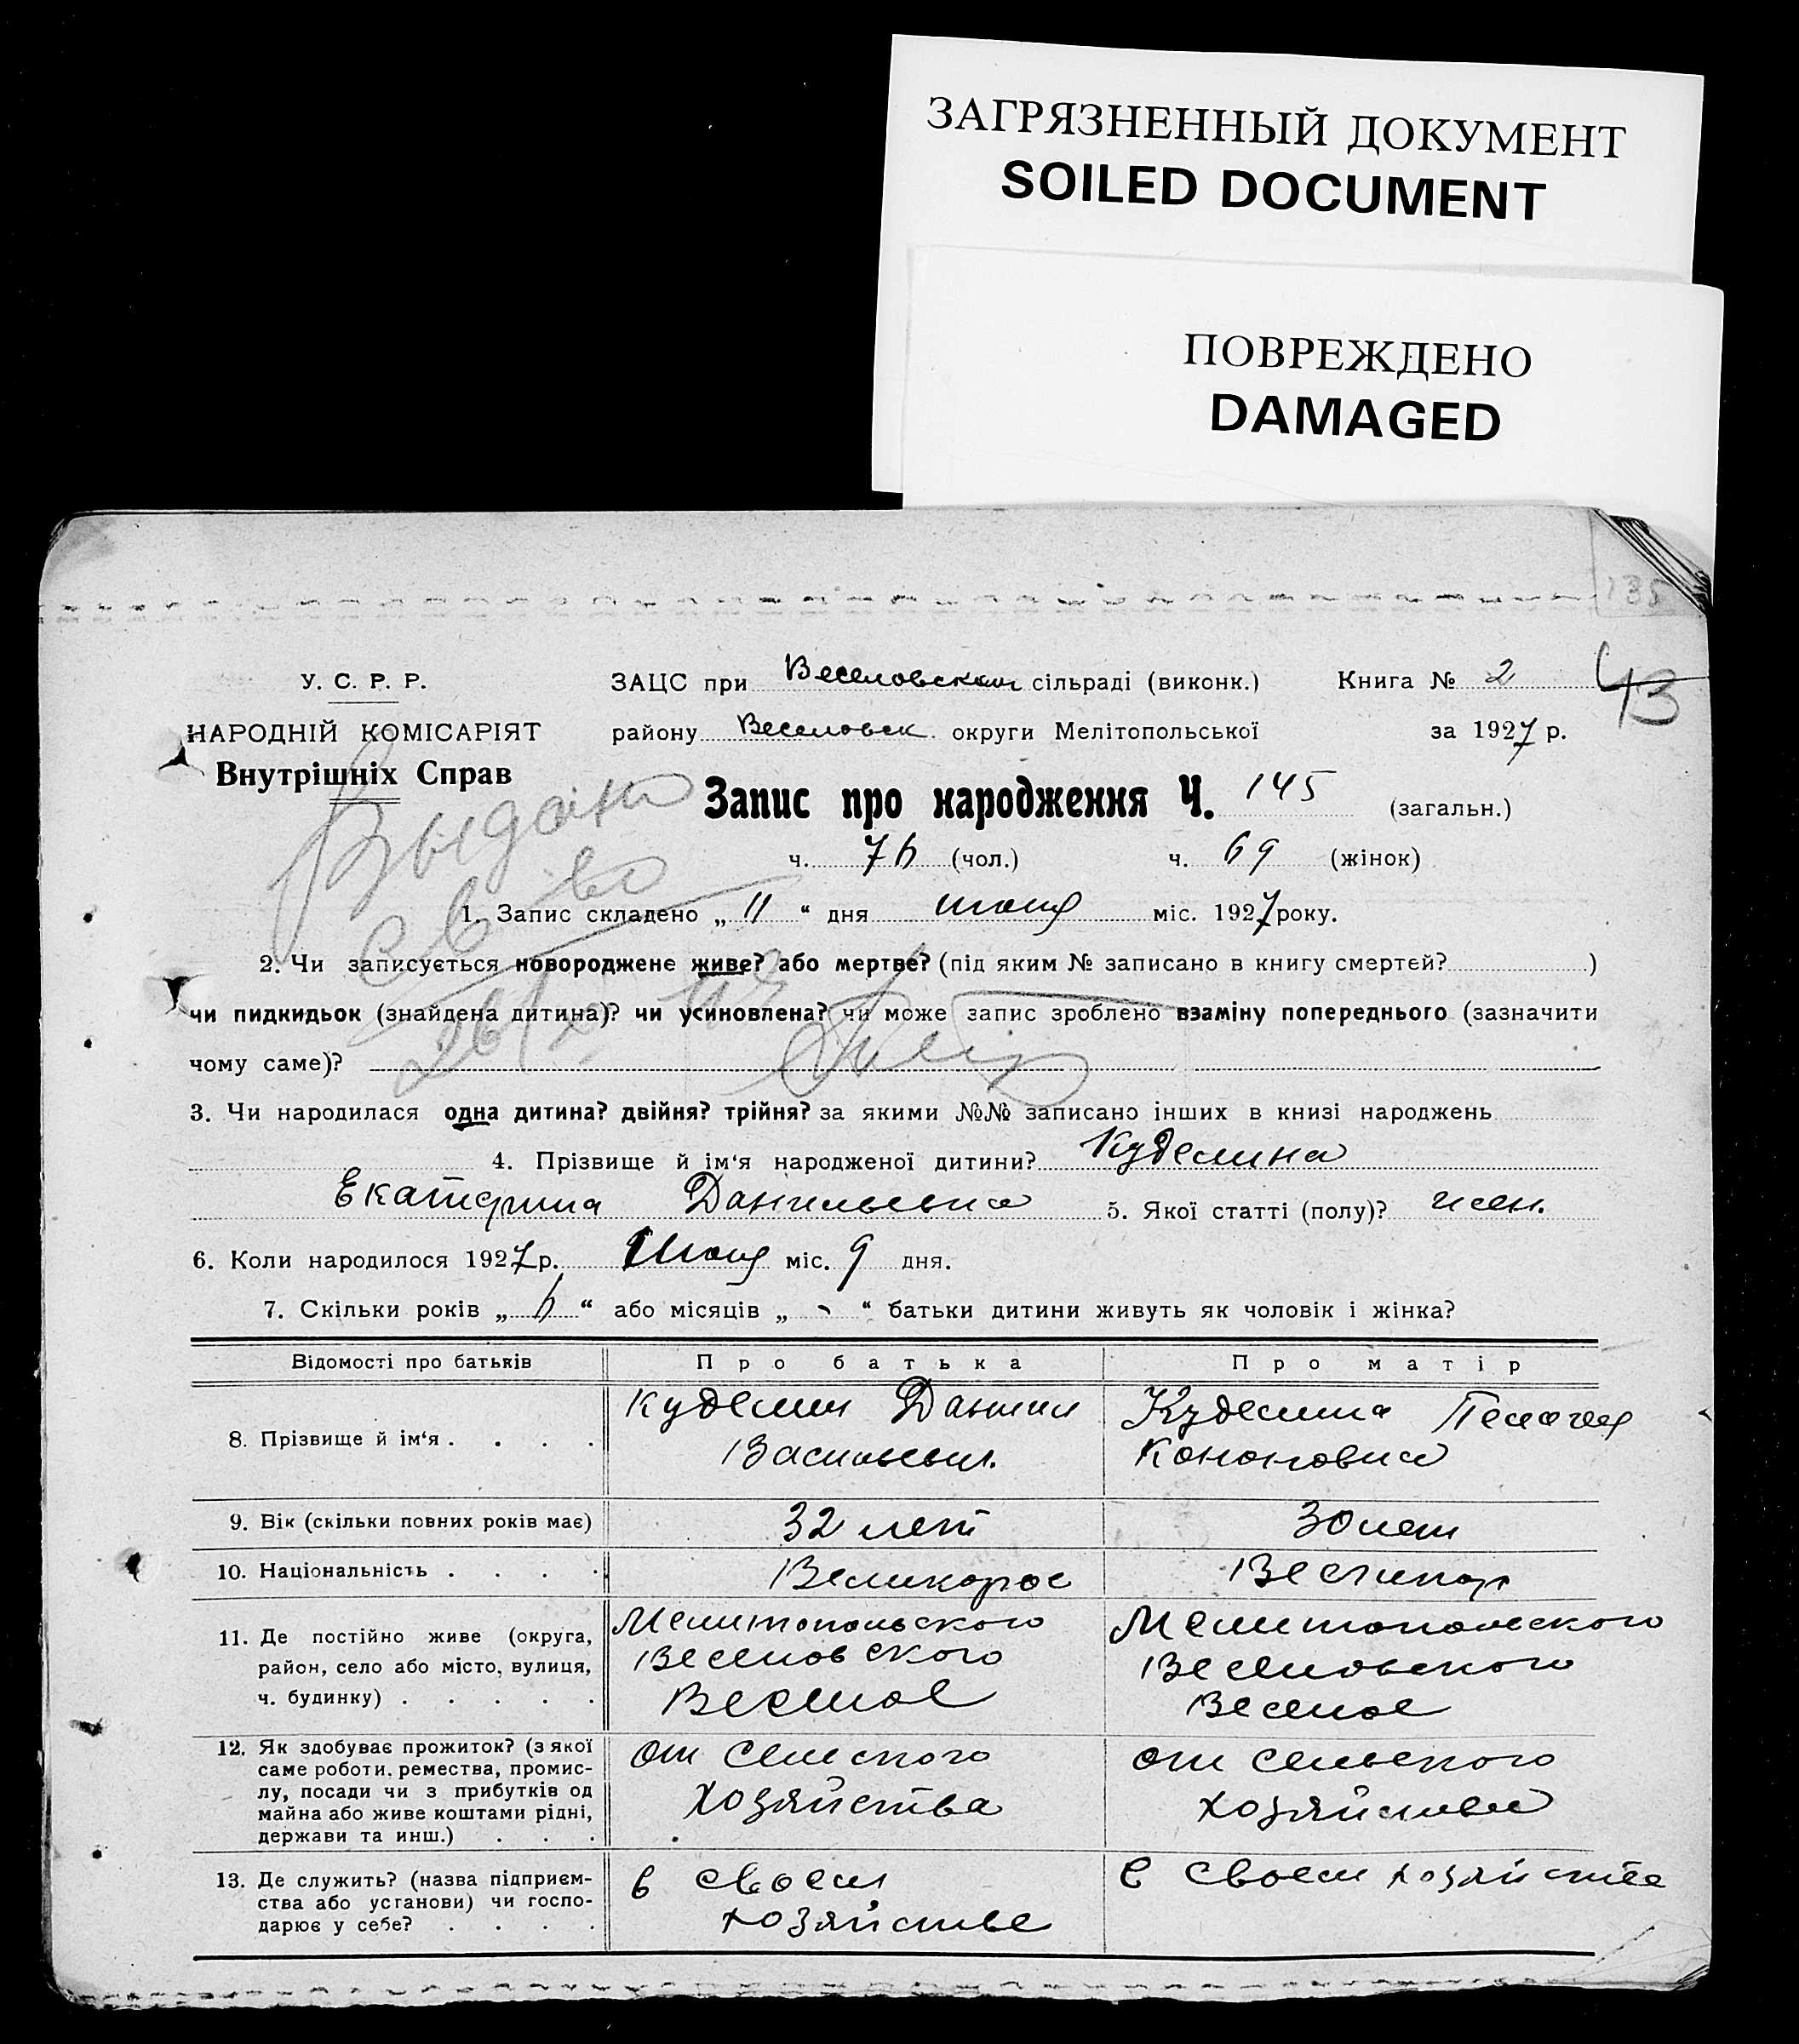 ЗАГРЯЗНЕННЫЙ ДОКУМЕНТ
SOILED DOCUMENT
ПОВРЕЖДЕНО
DAMAGED
135
У. С. Р. Р.
ЗАЦС при Веселовском сільраді (виконк.) Книга № 2
43
НАРОДНІЙ КОМІСАРІЯТ
району Веселовск округи Мелітопольської за 1927 р.
Внутрішніх Справ
Запис про народження Ч. 145 (загальн.)
ч. 76 (чол.) ч. 69 (жінок)
Выдано
св во
1. Запис складено „ 11 “ дня июня міс. 1927 року.
2. Чи записується новороджене живе? або мертве? (під яким № записано в книгу смертей? )
чи пидкидьок (знайдена дитина)? чи усиновлена? чи може запис зроблено взаміну попереднього (зазначити
чому саме)?
3. Чи народилася одна дитина? двійня? трійня? за якими №№ записано інших в книзі народжень
4. Прізвище й ім‘я народженої дитини? Куделина
Екатерина Данильевна 5. Якої статті (полу)? жен.
6. Коли народилося 1927 р. Июня міс. 9 дня.
7. Скільки років „ 6 “ або місяців „ - “ батьки дитини живуть як чоловік і жінка?
Відомості про батьків Про батька Про матір
8. Прізвище й ім‘я . . . . Куделин Даниил Куделина Пелагея
Васильевич. Кононовна
9. Вік (скільки повних років має) 32 лет 30 лет
10. Національність . . . . Великорос Великор
11. Де постійно живе (округа, район, село або місто, вулиця, ч. будинку) . . . . . Мелитопольского Мелитопольского
Веселовского Веселовского
Веселое Веселое
12. Як здобуває прожиток? (з якої
саме роботи, ремества, промис-
лу, посади чи з прибутків од
майна або живе коштами рідні,
держави та инш.) . . .
от сельского от сельского
хозяйства хозяйства
13. Де служить? (назва підприєм-
ства або установи) чи госпо-
дарює у себе? . . . .
в своем в своем хозяйстве
хозяйстве